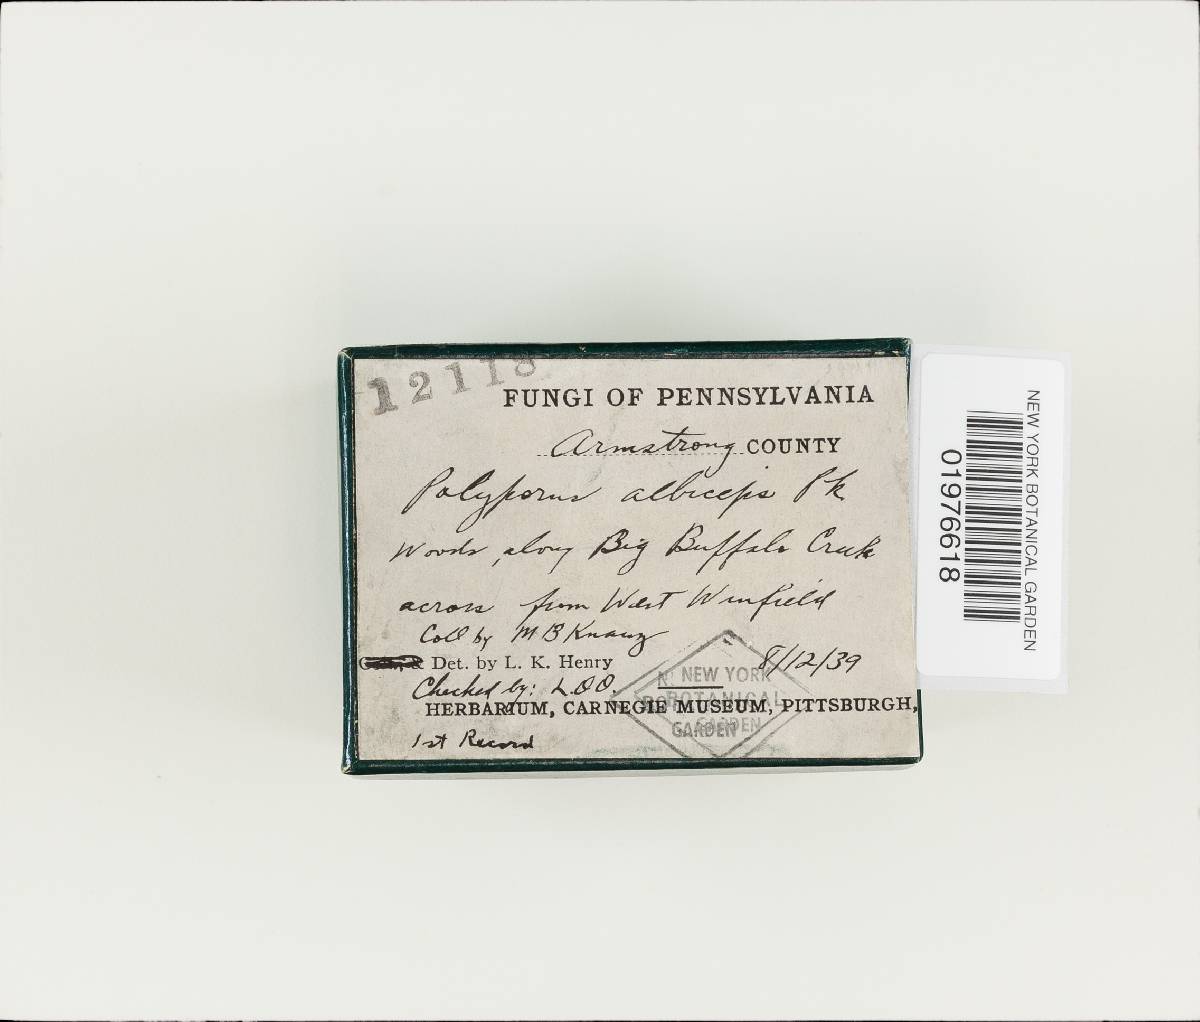 12118
FUNGI OF PENNSYLVANIA
Armstrong COUNTY
Polyporus albiceps Pk
Woods, along Big Buffalo Creek
across from West Winfield
Coll by M B Knauz
Det. by L. K. Henry 8/12/39
Checked by: L.O.O.
HERBARIUM, CARNEGIE MUSEUM, PITTSBURGH,
1st Record
NEW YORK
BOTANICAL
GARDEN
GARDEN
NEW YORK BOTANICAL GARDEN
01976618